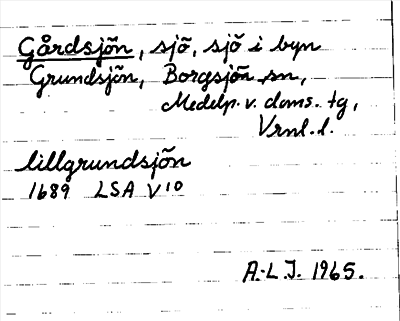 Gårdsjön, sjö, sjö i byn
Grundsjön, Borgsjön sn,
Medelp. v. doms. tg,
Vrnl. l.
lillgrundsjön
1689 LSA V 10
A.-L J. 1965.